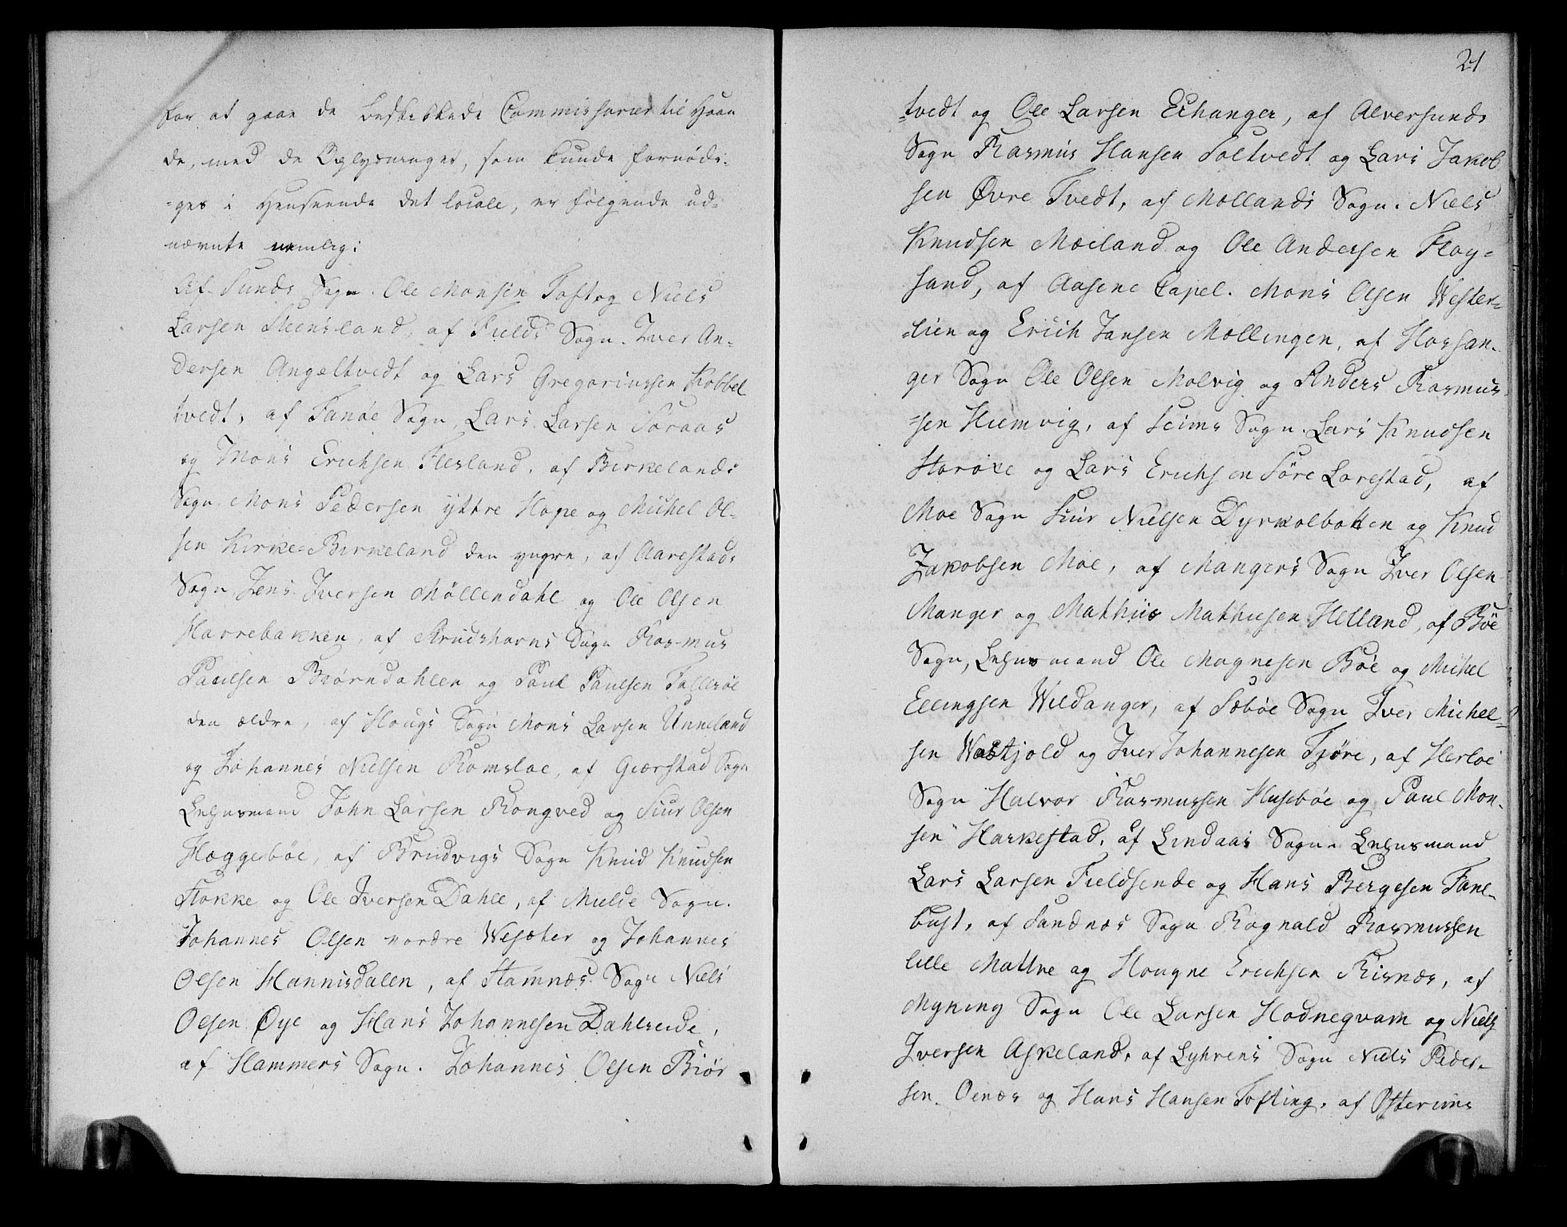 for at gaae de beskikkede Commissarier til Haan
de, med de Oplysninger, som kunde fornødi-
-ges i Henseende det locale, er følgende ud-
nævnte nemlig:
Af Sunds Sogn Ole Monsen Toft og Niels
Larsen Steensland, af Fields Sogn. Iver An-
dersen Angeltvedt og Lars Gregoriussen Kobbel
tvedt, af Fanøe Sogn, Lars Larsen Søraas
og Mons Erichsen Flesland, af Birkelands
Sogn Mons Pedersen yttre Hope og Michel Ol-
sen Kirke-Birkeland den yngre, af Aarestads
Sogn Jens Iversen Møllendahl og Ole Olsen
Harrebakken, af Brudshorns Sogn Rasmus
Paulsen Biørndahlen og Poul Paulsen Tellesøe
den ældre, af Hougs Sogn Mons Larsen Unneland
og Johannes Nielsen Romsloe, af Giærstad Sogn
Lehnsmand John Larsen Rongved og Siur Olsen
Hæggebøe, af Brudvigs Sogn Knud Knudsen
Stokke og Ole Iversen Dahle, af Mielde Sogn.
Johannes Olsen nordre Wesæter og Johannes
Olsen Hannisdalen, af Stamnæs Sogn Niels
Olsen Øye og Hans Johannesen Dahlseide,
af Hammers Sogn. Johannes Olsen Biør
21
-tvedt og Ole Larsen Echanger, af Alversunds
Sogn Rasmus Hansen Foltvedt og Lars Jakob
sen Øvre Tvedt, af Mollands Sogn. Niels
Knudsen Mæeland og Ole Andersen Flay-
sand, af Aasene Capel. Mons Olsen Wester-
-lien og Erich Jansen Mollingen, af Hosan-
ger Sogn Ole Olsen Molvig og Anders Rasmus
-sen Hiemvig, af Seims Sogn. Lars Knudsen
Horøxe og Lars Erichsen Søre Larestad, af
Moe Sogn Siur Nielsen Dyrkolbotten og Knud
Jakobsen Moe, af Mangers Sogn Iver Olsen
Manger og Mathias Mathiesen Helland, af Bøe
Sogn, Lehnsmand Ole Magnesen Bøe og Michel
Ellingsen Wildanger, af Sæbøe Sogn Iver Michel-
sen Waskjold og Iver Johannesen Tjøre, af Herløe
Sogn Halvor Rasmussen Husebøe og Paul Mon-
sen Harkestad, af Lindaas Sogn. Lehnsmand
Lars Larsen Fieldsende og Hans Børgesen Fane-
bust, af Sandnæs Sogn Rognald Rasmussen
lille Mattre og Hougne Erichsen Risnæs, af
Myking Sogn Ole Larsen Hodnegvam og Niels
Iversen Askeland, af Lyhrens Sogn Niels Peder-
sen Oenæs og Hans Hansen Tofting, af Østeriins